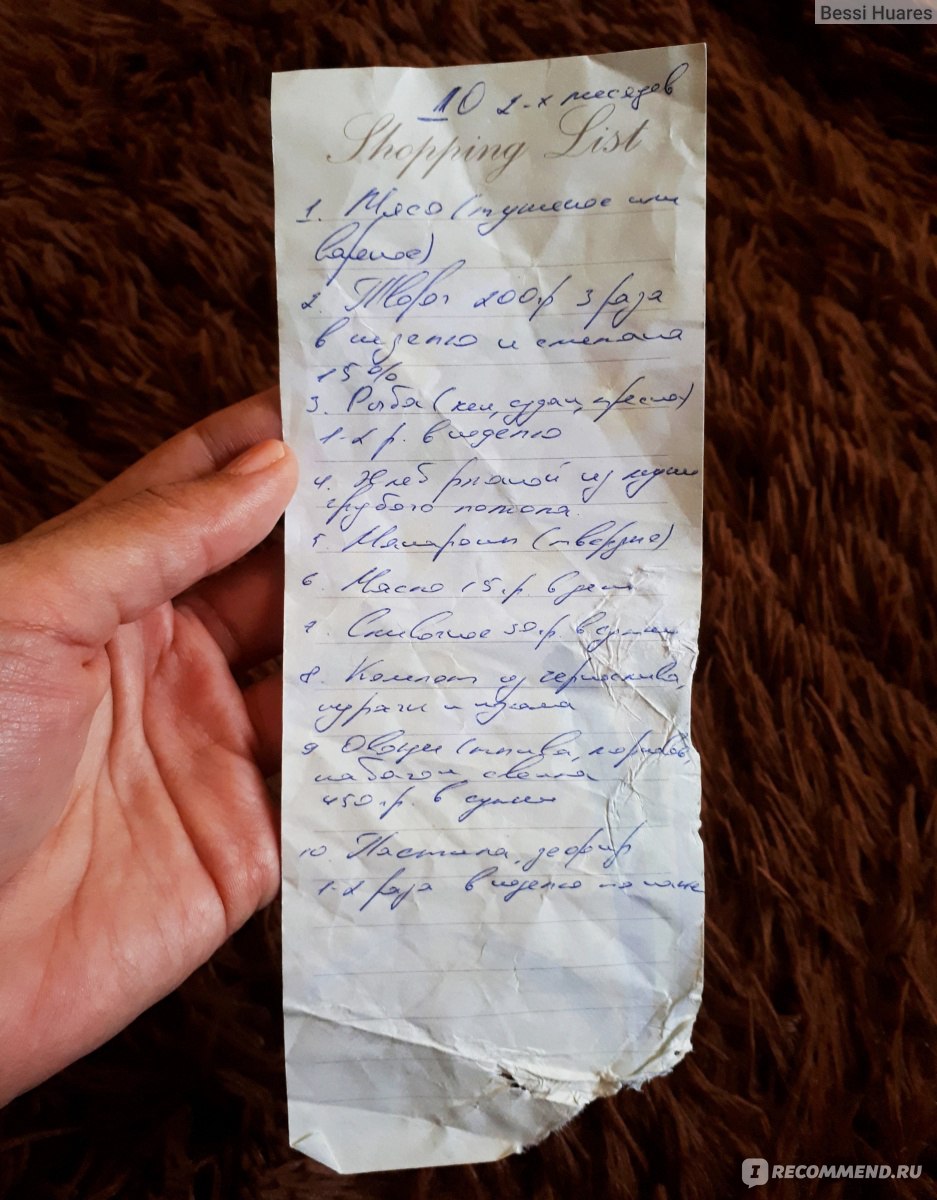 Bessi Huares
10 2-х месяцев
Shopping List
1. Мясо (тушеное или
вареное)
2. Творог 200 гр 3 раза
в неделю и сметана
15%
3. Рыба (хек, судак,
1-2 р. в неделю
4. Хлеб ржаной из муки
грубого помола.
5. Макароны (твердые)
6. Масло 15 гр. в день
7. Сливочное 30 гр. в сутки
8. Компот из чернослива,
кураги и изюма
9. Овощи (тыква, морковь,
кабачок, свекла
450 гр. в сутки
10. Пастила, зефир
1-2 раза в неделю по
IRECOMMEND.RU